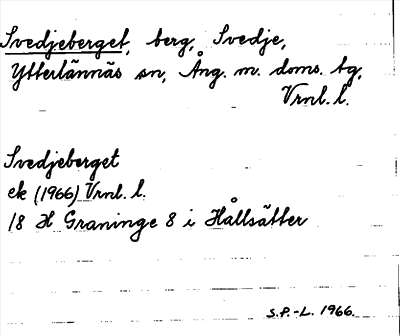 Svedjeberget, berg, Svedje,
Ytterlännäs sn, Ång. m. doms. tg,
Vrnl. l.
Svedjeberget
ek (1966) Vrnl. l.
18 H Graninge 8 i Hållsätter
S.P.-L. 1966.